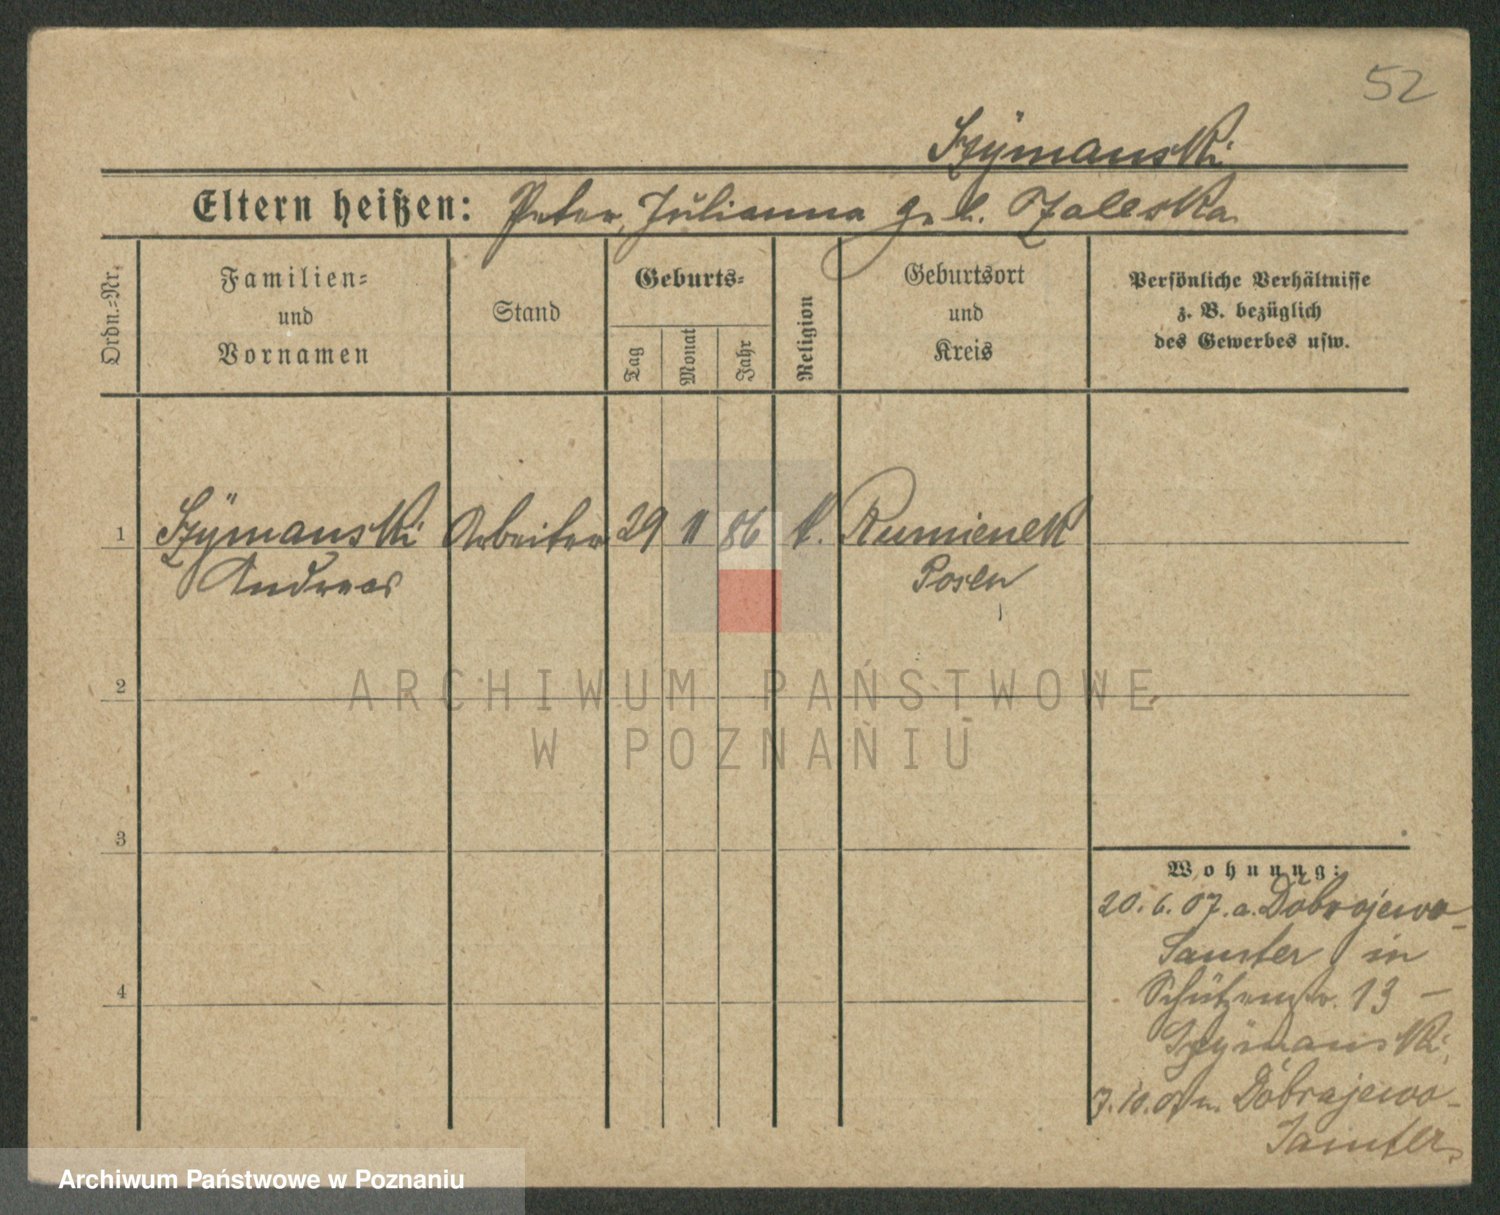 52
Szÿmanski
Eltern heißen: Peter, Julianna geb. Zaleska
Ordn.-Nr.
Familien-
und
Vornamen
Stand
Geburts-
Tag
Monat
Jahr
Religion
Geburtsort
und
Kreis
Persönliche Verhältnisse
z. B. bezüglich
des Gewerbes usw.
1 Szÿmanski Arbeiter 29 11 86 k. Rumienek
Andreas Posen
2
ARCHIWUM PAŃSTWOWE
W POZNANIU
3
Wohnung:
20.6.07. a. Dobrojewo-
Samter in
4
Schützenstr. 13 –
Szÿmanski,
7.10.07 n. Dobrajewo-
Samter
Archiwum Państwowe w Poznaniu